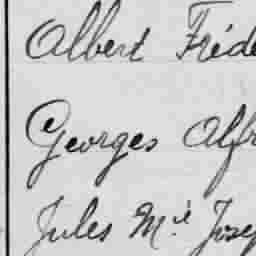 Albert Fréde
Georges Alfr
Jules Mie Josep